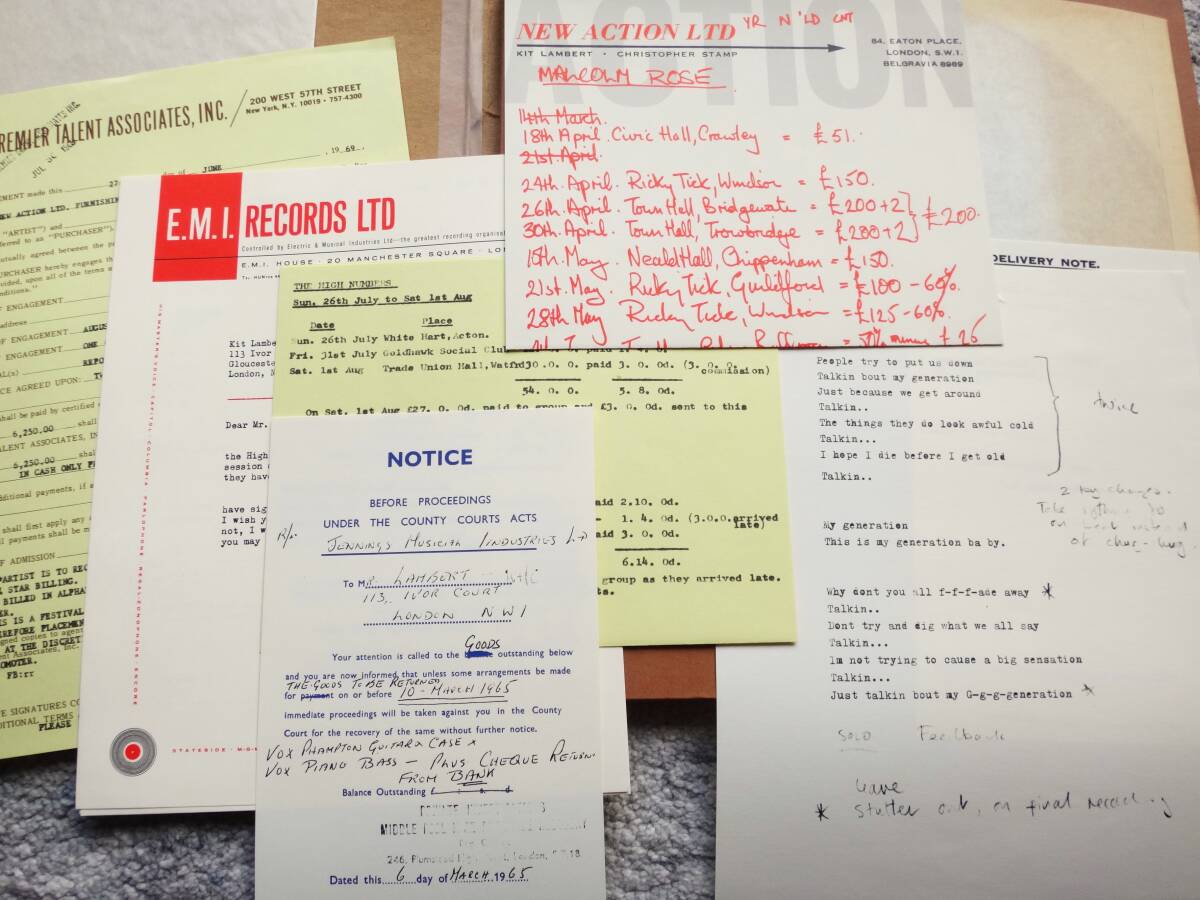 PREMIER TALENT ASSOCIATES, INC.
200 WEST 57TH STREET
New York, N.Y. 10019 • 757-4300
JUNE
, 19 69.
NEW ACTION LTD. FURNISHIN
"ARTIST") and
ferred to as "PURCHASER").
mutually agreed between the pa
PURCHASER hereby engages th
vided, upon all of the terms a
onditions."
ENGAGEMENT
address
OF ENGAGEMENT AUGUS
ENGAGEMENT ONE
REPO
ICE AGREED UPON: TW
shall be paid by certified
6,250.00 shall
TALENT ASSOCIATES, IN
6,250.00 shall
IN CASH ONLY
additional payments, if a
shall first apply any
payments shall be m
OF ADMISSION
ARTIST IS TO REC
STAR BILLING.
BILLED IN ALPHA
IS A FESTIVAL
REFORE PLACEMEN
signed copies to agent
AT THE DISCRET
Talent Associates, Inc.
OMOTER.
FB:rr
E SIGNATURES CO
DITIONAL TERMS
PLEASE
E.M.I. RECORDS LTD
Controlled by Electric & Musical Industries Ltd—the greatest recording organisa
E.M.I. HOUSE · 20 MANCHESTER SQUARE · LO
HIS MASTER'S VOICE · CAPITOL · COLUMBIA · PARLOPHONE · REGAL-ZONOPHONE · ENCORE
Kit Lambe
113 Ivor
Glouceste
London, N
Dear Mr.
the High
session
they have
have sig
I wish y
not, I w
you may
STATESIDE · M-G-
THE HIGH NUMBERS
Sun. 26th July to Sat 1st Aug
Date Place
Sun. 26th July White Hart, Acton.
Fri. 31st July Goldhawk Social Clu
Sat. 1st Aug Trade Union Hall, Watfrd 30. 0. 0. paid 3. 0. 0d. (3. 0. 0.
commission)
54. 0. 0. 5. 8. 0d.
On Sat. 1st Aug £27. 0. 0d. paid to group and £3. 0. 0d. sent to this
aid 2.10. 0d.
- 1. 4. 0d. (3.0.0.arrived
late)
aid 3. 0. 0d.
6.14. 0d.
group as they arrived late.
ts.
ACTION
NEW ACTION LTD
YR N'LD CNT
KIT LAMBERT • CHRISTOPHER STAMP
84, EATON PLACE,
LONDON, S.W.1.
BELGRAVIA 8989
MALCOLM ROSE
14th March.
18th April. Civic Hall, Crawley = £51.
21st April.
24th. April. Ricky Tick, Windsor = £150.
26th April. Town Hall, Bridgewate = £200 ÷ 2 } £200.
30th April. Town Hall, Trowbridge = £200 ÷ 2
15th. May. Neald Hall, Chippenham = £150.
21st. May. Ricky Tick, Guildford = £100 - 60%.
28th May Ricky Tick, Windsor = £125 - 60%.
NOTICE
BEFORE PROCEEDINGS
UNDER THE COUNTY COURTS ACTS
JENNINGS MUSICAL INDUSTRIES LTD
To MR LAMBERT
113, IVOR COURT
LONDON NW1
Your attention is called to the GOODS outstanding below
and you are now informed, that unless some arrangements be made
THE GOODS TO BE RETURNED
for payment on or before 10 - MARCH 1965
immediate proceedings will be taken against you in the County
Court for the recovery of the same without further notice.
VOX PHAMPTON GUITAR & CASE x
VOX PIANO BASS - PLUS CHEQUE RETURN.
FROM BANK
Balance Outstanding £ s d
246, Plumstead London, S.E.18
Dated this 6 day of MARCH 1965
DELIVERY NOTE.
People try to put us down
Talkin bout my generation
Just because we get around
Talkin..
The things they do look awful cold
Talkin...
I hope I die before I get old
Talkin..
twice
2 key changes.
My generation
This is my generation ba by.
Why dont you all f-f-f-ade away *
Talkin..
Dont try and dig what we all say
Talkin...
lm not trying to cause a big sensation
Talkin...
Just talkin bout my G-g-g-generation *
SOLO Feedback
Leave
* stutter out, on final recording